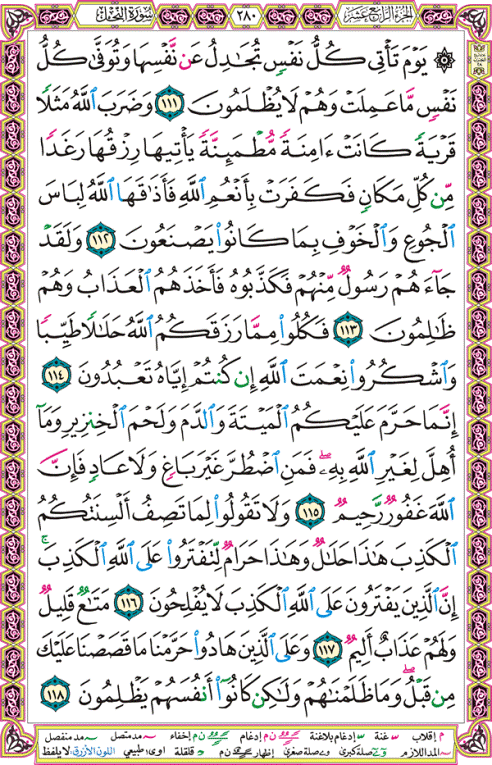 الجزء الرابع عشر
٢٨٠
سورة النحل
۞ يَوْمَ تَأْتِى كُلُّ نَفْسٍ تُجَٰدِلُ عَن نَّفْسِهَا وَتُوَفَّىٰ كُلُّ
نَفْسٍ مَّا عَمِلَتْ وَهُمْ لَا يُظْلَمُونَ ١١١ وَضَرَبَ ٱللَّهُ مَثَلًا
قَرْيَةً كَانَتْ ءَامِنَةً مُّطْمَئِنَّةً يَأْتِيهَا رِزْقُهَا رَغَدًا
مِّن كُلِّ مَكَانٍ فَكَفَرَتْ بِأَنْعُمِ ٱللَّهِ فَأَذَٰقَهَا ٱللَّهُ لِبَاسَ
ٱلْجُوعِ وَٱلْخَوْفِ بِمَا كَانُوا۟ يَصْنَعُونَ ١١٢ وَلَقَدْ
جَآءَهُمْ رَسُولٌ مِّنْهُمْ فَكَذَّبُوهُ فَأَخَذَهُمُ ٱلْعَذَابُ وَهُمْ
ظَٰلِمُونَ ١١٣ فَكُلُوا۟ مِمَّا رَزَقَكُمُ ٱللَّهُ حَلَٰلًا طَيِّبًا
وَٱشْكُرُوا۟ نِعْمَتَ ٱللَّهِ إِن كُنتُمْ إِيَّاهُ تَعْبُدُونَ ١١٤
إِنَّمَا حَرَّمَ عَلَيْكُمُ ٱلْمَيْتَةَ وَٱلدَّمَ وَلَحْمَ ٱلْخِنزِيرِ وَمَآ
أُهِلَّ لِغَيْرِ ٱللَّهِ بِهِۦ ۖ فَمَنِ ٱضْطُرَّ غَيْرَ بَاغٍ وَلَا عَادٍ فَإِنَّ
ٱللَّهَ غَفُورٌ رَّحِيمٌ ١١٥ وَلَا تَقُولُوا۟ لِمَا تَصِفُ أَلْسِنَتُكُمُ
ٱلْكَذِبَ هَٰذَا حَلَٰلٌ وَهَٰذَا حَرَامٌ لِّتَفْتَرُوا۟ عَلَى ٱللَّهِ ٱلْكَذِبَ ۚ
إِنَّ ٱلَّذِينَ يَفْتَرُونَ عَلَى ٱللَّهِ ٱلْكَذِبَ لَا يُفْلِحُونَ ١١٦ مَتَٰعٌ قَلِيلٌ
وَلَهُمْ عَذَابٌ أَلِيمٌ ١١٧ وَعَلَى ٱلَّذِينَ هَادُوا۟ حَرَّمْنَا مَا قَصَصْنَا عَلَيْكَ
مِن قَبْلُ ۖ وَمَا ظَلَمْنَٰهُمْ وَلَٰكِن كَانُوٓا۟ أَنفُسَهُمْ يَظْلِمُونَ ١١٨
م إقلاب س غنة إدغام بلاغنة ن م إدغام ن م إخفاء مد متصل مد منفصل
المد اللازم صلة كبرى صلة صغرى إظهار ن م قلقلة اوى: طبيعي اللون الأزرق: لا يلفظ